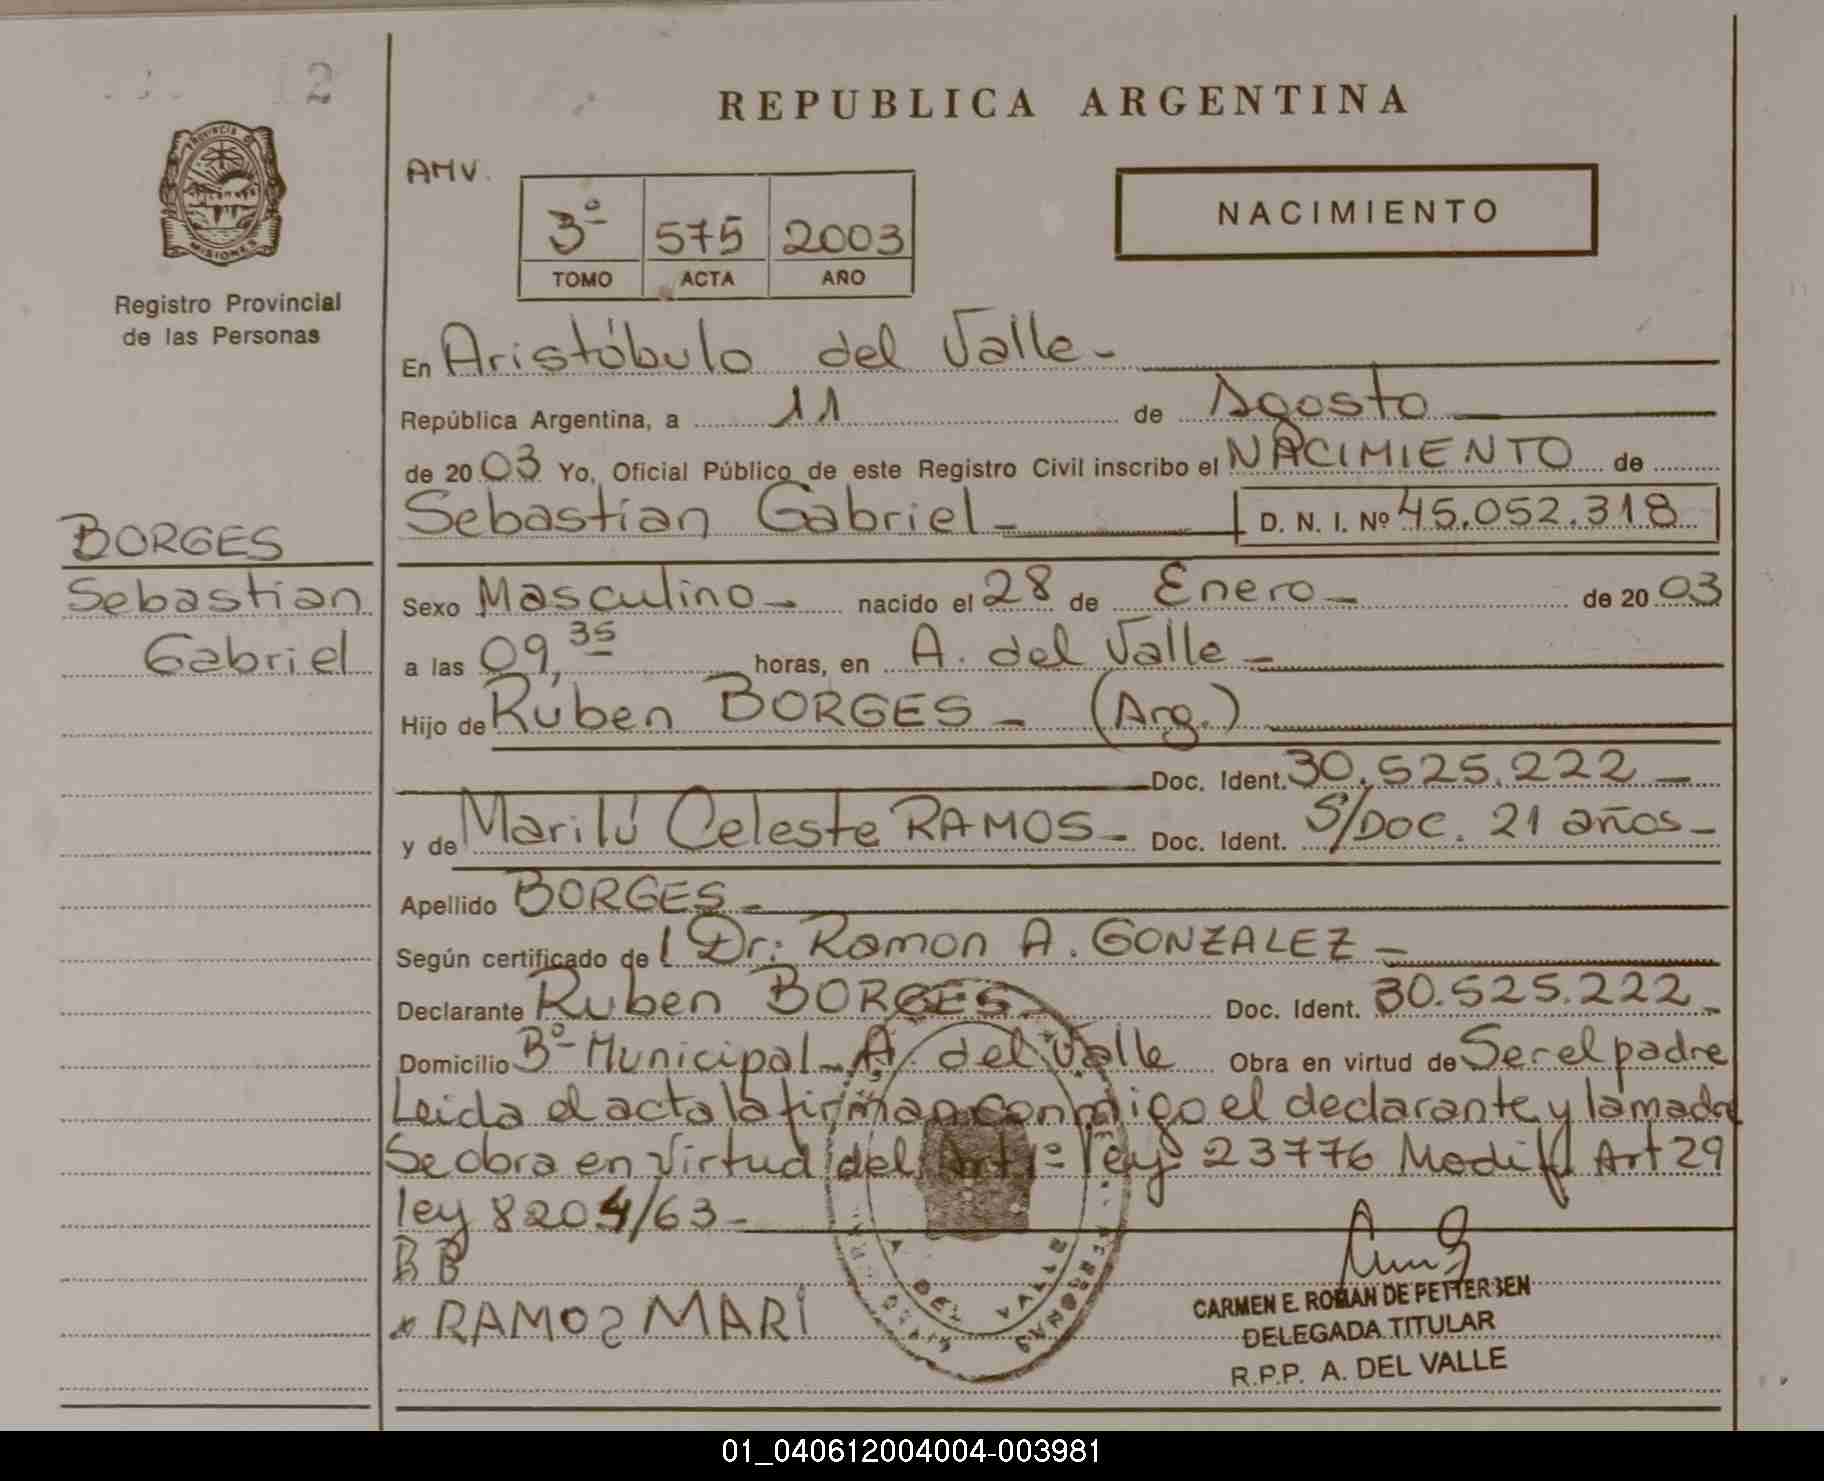 2
REPUBLICA ARGENTINA
AMV.
3º 575 2003
TOMO ACTA AÑO
NACIMIENTO
PROVINCIA DE
MISIONES
Registro Provincial
de las Personas
En Aristóbulo del Valle -
República Argentina, a 11 de Agosto
de 20 03 Yo, Oficial Público de este Registro Civil inscribo el NACIMIENTO de
Sebastian Gabriel - D. N. I. Nº 45.052.318
BORGES
Sebastian
Gabriel
Sexo Masculino - nacido el 28 de Enero - de 20 03
a las 09,35 horas, en A. del Valle -
Hijo de Rúben BORGES - (Arg.)
Doc. Ident. 30.525.222 -
y de Marilú Celeste RAMOS - Doc. Ident. S/Doc. 21 años -
Apellido BORGES -
Según certificado de l Dr: Ramon A. GONZALEZ -
Declarante Ruben BORGES Doc. Ident. 30.525.222 -
Domicilio Bº Municipal - A. del Valle Obra en virtud de Ser el padre
Leida el acta la firman conmigo el declarante y la madre
Se obra en virtud del Art 1º ley 23776 Modif Art 29
ley 8204/63 -
B B
RAMOS MARI
A. DEL VALLE
CARMEN E. ROMAN DE PETTERSEN
DELEGADA TITULAR
R.P.P. A. DEL VALLE
01_040612004004-003981